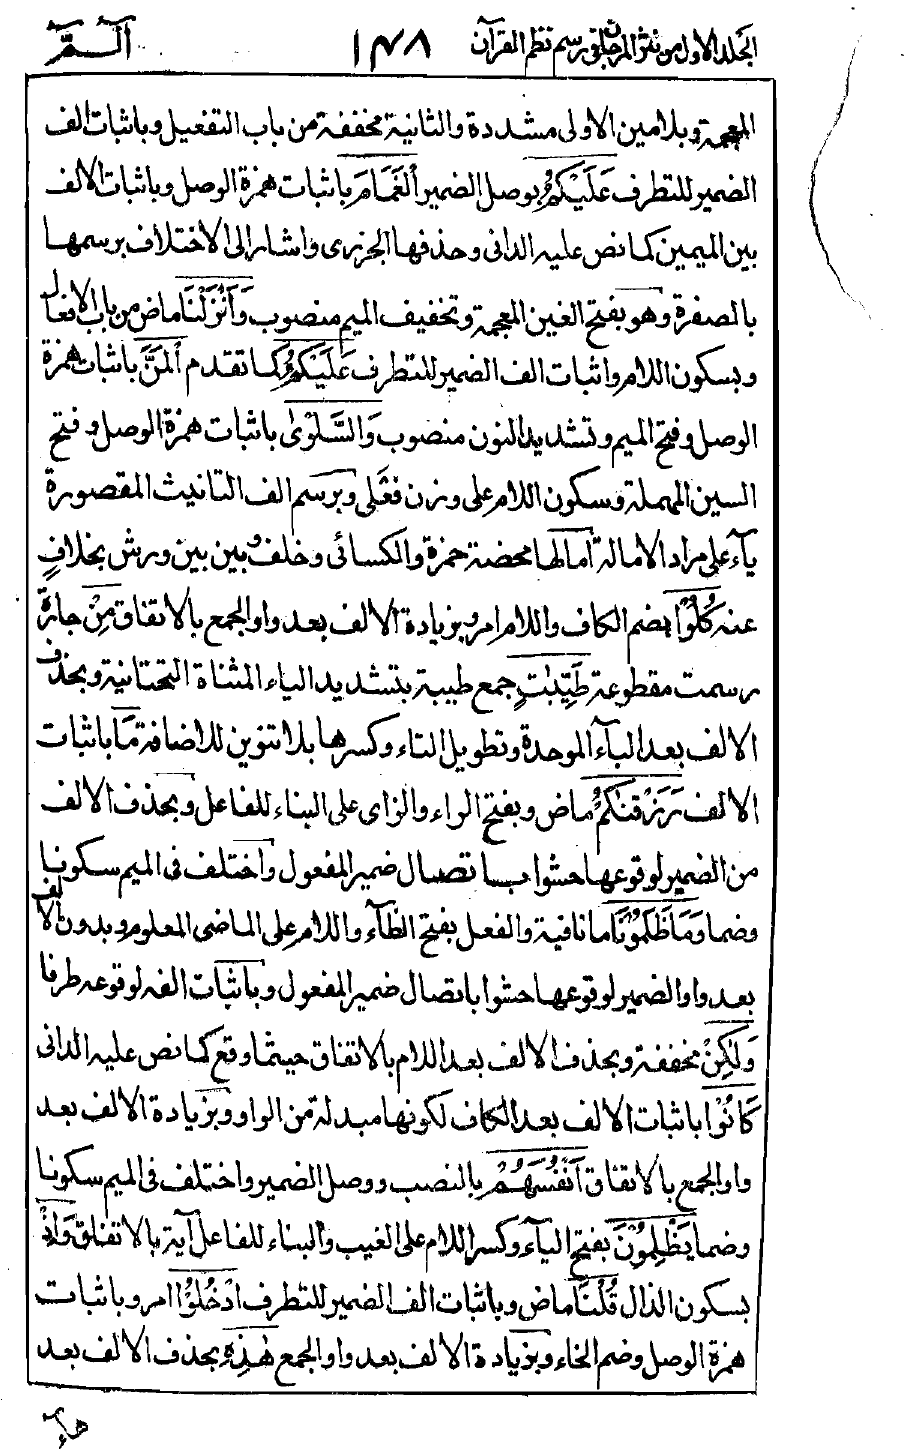 الجلد الاول من نثر المرجان فى رسم نظم القرآن
١٤٨
آلــمّ
المعجمة وبلامين الاولى مشددة والثانية مخففة من باب التفعيل وباثبات الف
الضمير للتطرف عَلَيْكُمُ بوصل الضمير الْغَمَامَ باثبات همزة الوصل وباثبات الالف
بين الميمين كما نص عليه الدانى وحذفها الجزرى واشار الى الاختلاف برسمها
بالصفرة وهو بفتح الغين المعجمة وتخفيف الميم منصوب وَأَنْزَلْنَا ماض من باب الافعال
وبسكون اللام واثبات الف الضمير للتطرف عَلَيْكُمُ كما تقدم الْمَنَّ باثبات همزة
الوصل وفتح الميم وتشديد النون منصوب وَالسَّلْوٰى باثبات همزة الوصل وفتح
السين المهملة وسكون اللام على وزن فَعْلى وبرسم الف التانيث المقصورة
ياء على مراد الامالة امالها محضة حمزة والكسائى وخلف وبين بين ورش بخلافٍ
عنه كُلُوْا بضم الكاف واللام امر وبزيادة الالف بعد واو الجمع بالاتفاق مِنْ جارة
رسمت مقطوعة طَيِّبٰتِ جمع طيبة بتشديد الياء المثناة التحتانية وبحذف
الالف بعد البآء الموحدة وتطويل التاء وكسرها بلا تنوين للاضافة مَا باثبات
الالف رَزَقْنٰكُمْ ماض وبفتح الراء والزاى على البناء للفاعل وبحذف الالف
من الضمير لوقوعها حشوا باتصال ضمير المفعول واختلف فى الميم سكونا
وضما وَمَا ظَلَمُوْنَا ما نافية والفعل بفتح الظآء واللام على الماضى المعلوم وبدون الالف
بعد واو الضمير لوقوعها حشوا باتصال ضمير المفعول وباثبات الفه لوقوعه طرفا
وَلٰكِنْ مخففة وبحذف الالف بعد اللام بالاتفاق حيثما وقع كما نص عليه الدانى
كَانُوْا باثبات الالف بعد الكاف لكونها مبدلة من الواو وبزيادة الالف بعد
واو الجمع بالاتفاق أَنْفُسَهُمْ بالنصب ووصل الضمير واختلف فى الميم سكونا
وضما يَظْلِمُوْنَ بفتح اليآء وكسر اللام على الغيب والبناء للفاعل آية بالاتفاق وَإِذْ
بسكون الذال قُلْنَا ماض وباثبات الف الضمير للتطرف ادْخُلُوْا امر وباثبات
همزة الوصل وضم الخاء وبزيادة الالف بعد واو الجمع هٰذِهِ بحذف الالف بعد
هآء